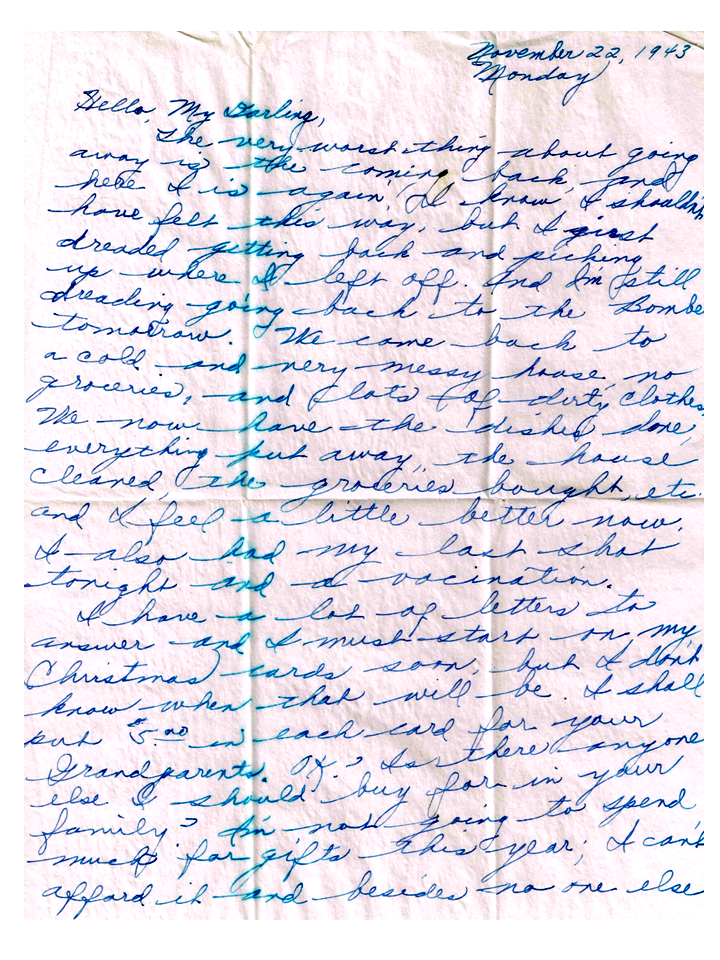 November 22, 1943
Monday
Hello, My Darling,
The very worst thing about going
away is the coming back, and
here I is again! (I know I shouldn't
have felt this way, but I just
dreaded getting back and picking
up where I left off. And I'm still
dreading going back to the Bombe
tomorrow. We came back to
a cold and very messy house, no
groceries, and lots of dirty clothes,
We now have the dishes done,
everything put away, the house
cleaned, the groceries bought, etc.
and I feel a little better now.
I also had my last shot
tonight and a vacination.
I have a lot of letters to
answer and I must start on my
Christmas cards soon, but I don't
know when that will be. I shall
put $5.00 in each card for your
Grandparents. OK? Is there anyone
else I should buy for in your
family? I'm not going to spend
much for gifts this year; I can't
afford it and besides no one else